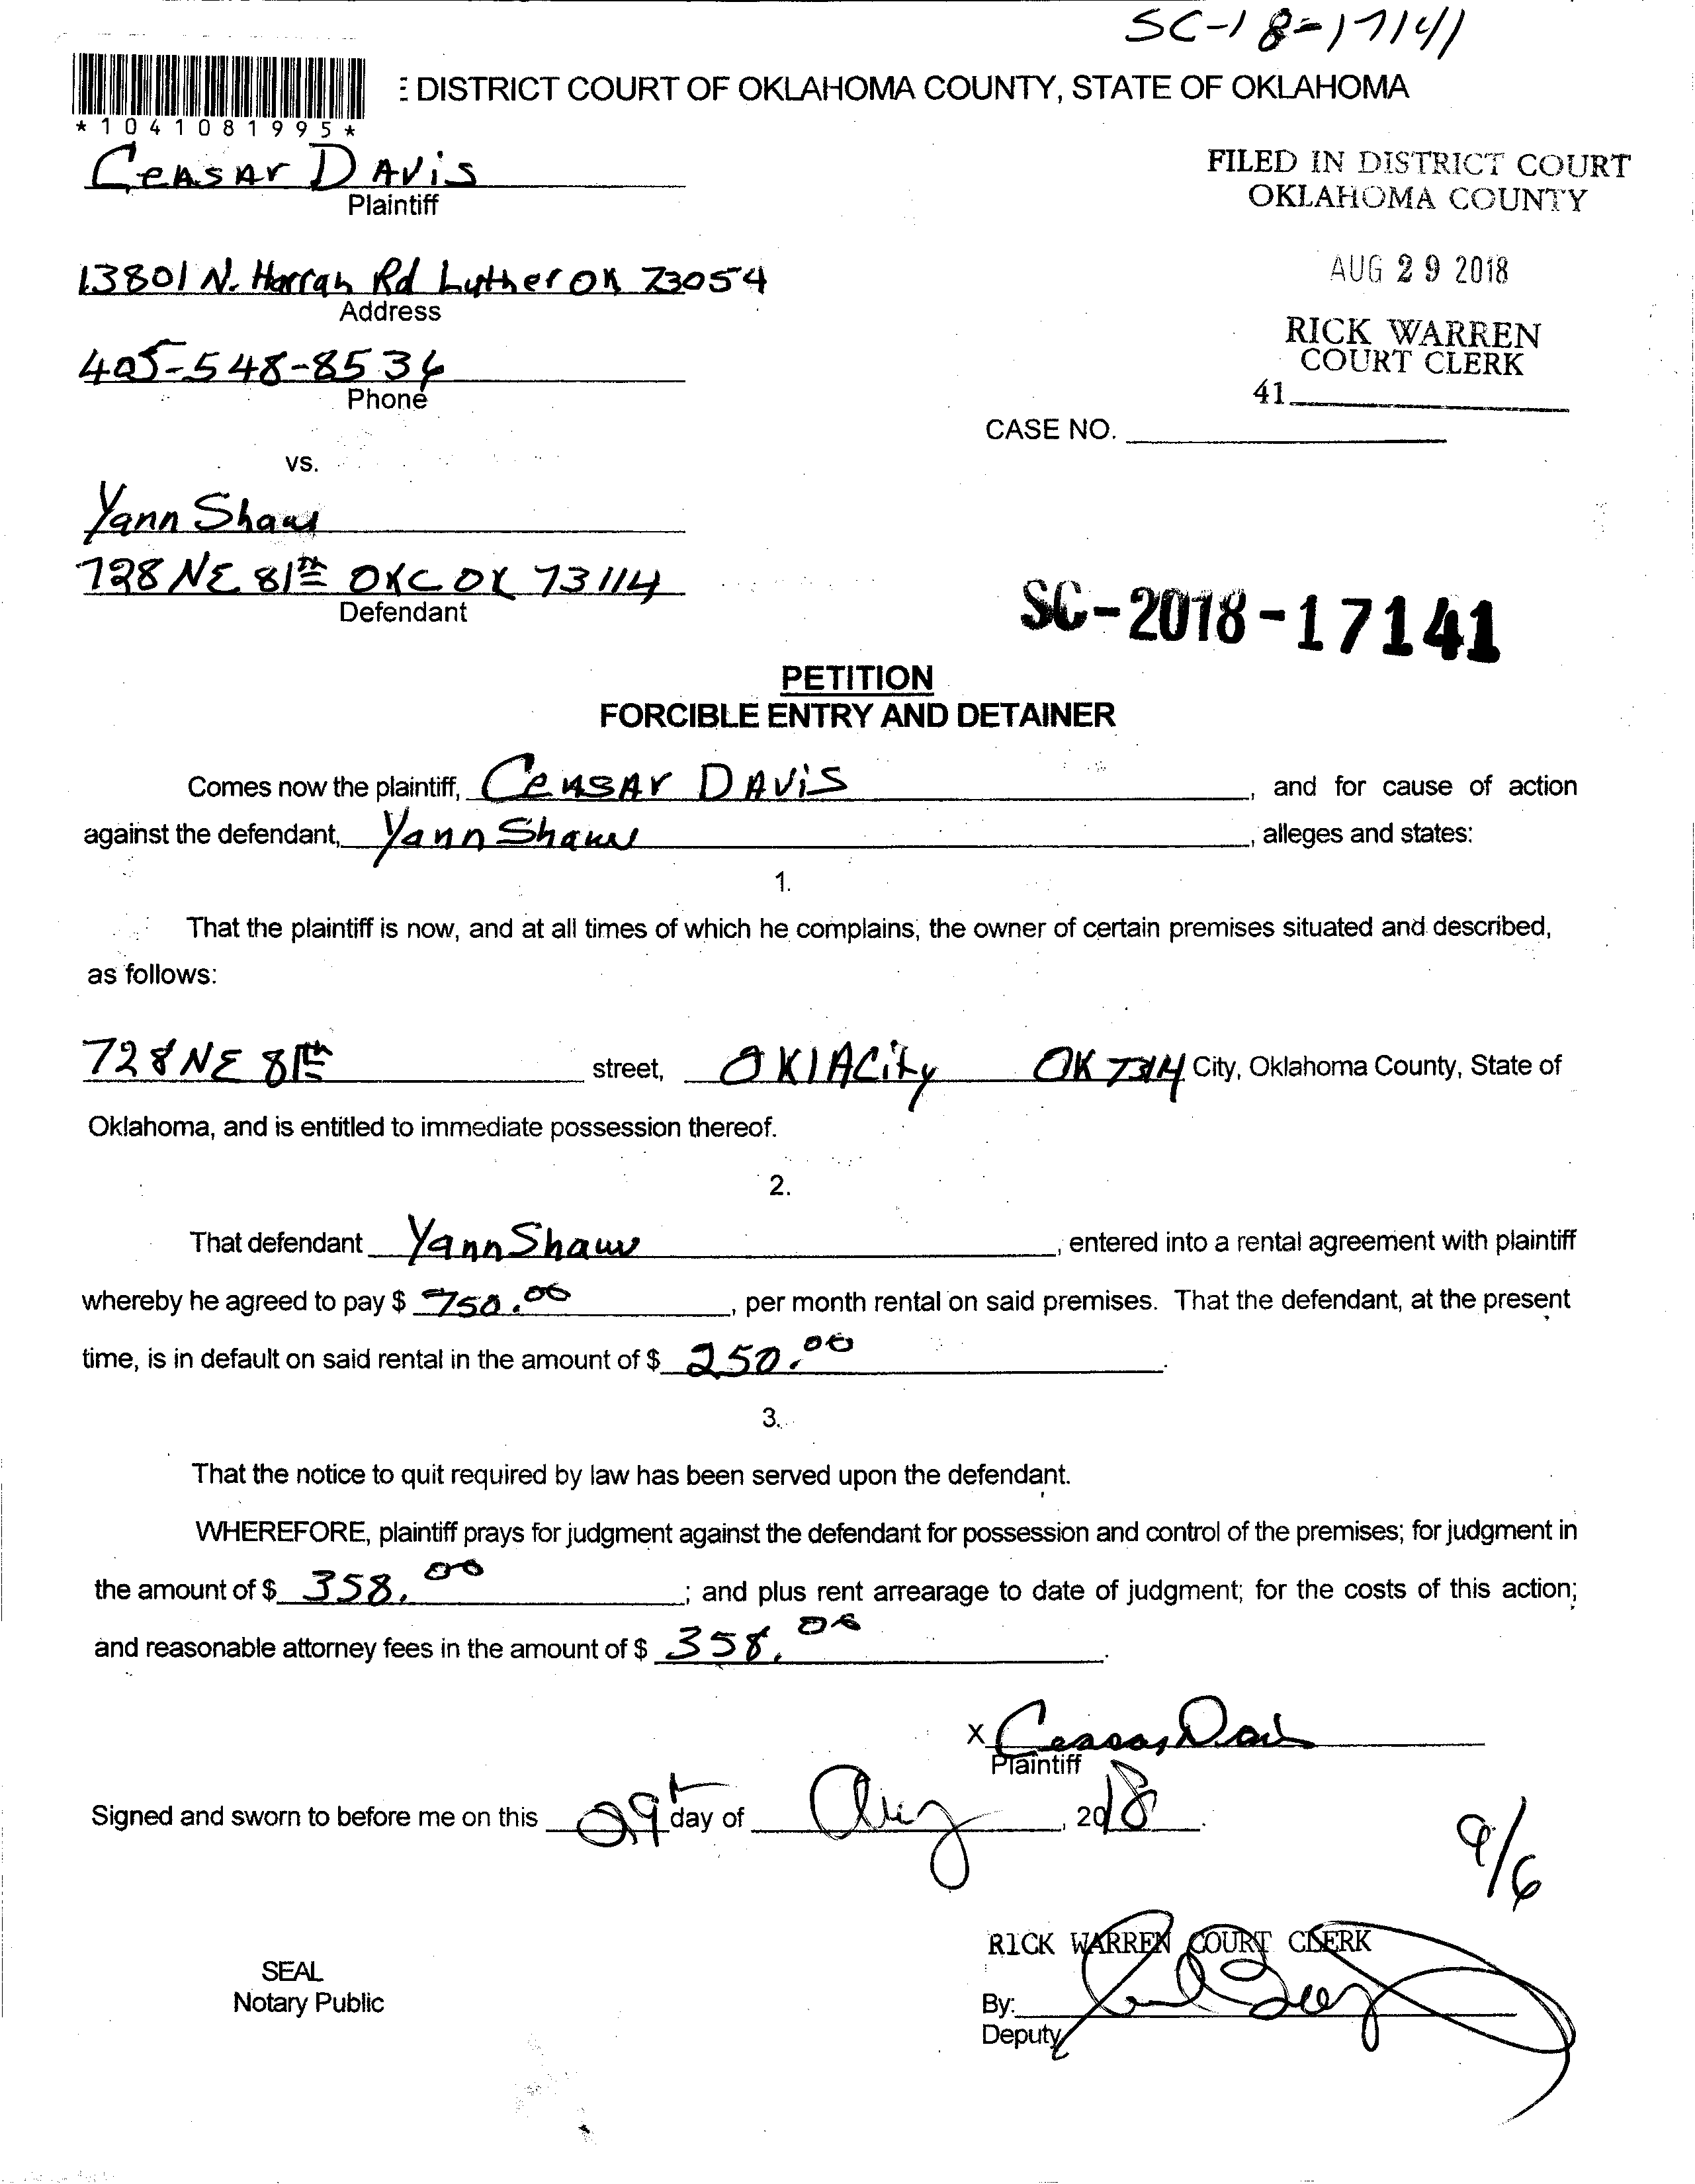 SC-18-17141
: DISTRICT COURT OF OKLAHOMA COUNTY, STATE OF OKLAHOMA
*1041081995*
Ceasar Davis
Plaintiff
FILED IN DISTRICT COURT
OKLAHOMA COUNTY
13801 N. Harrah Rd Luther OK 73054
Address
AUG 29 2018
405-548-8536
Phone
RICK WARREN
COURT CLERK
41
CASE NO.
vs.
Yann Shaw
728 NE 81th OKC OK 73114
Defendant
SC-2018-17141
PETITION
FORCIBLE ENTRY AND DETAINER
Comes now the plaintiff, Ceasar Davis, and for cause of action
against the defendant, Yann Shaw, alleges and states:
1.
That the plaintiff is now, and at all times of which he complains, the owner of certain premises situated and described,
as follows:
728 NE 81th street, OklaCity OK 73114 City, Oklahoma County, State of
Oklahoma, and is entitled to immediate possession thereof.
2.
That defendant Yann Shaw, entered into a rental agreement with plaintiff
whereby he agreed to pay $ 750.00, per month rental on said premises. That the defendant, at the present
time, is in default on said rental in the amount of $ 250.00.
3.
That the notice to quit required by law has been served upon the defendant.
WHEREFORE, plaintiff prays for judgment against the defendant for possession and control of the premises; for judgment in
the amount of $ 358.00; and plus rent arrearage to date of judgment; for the costs of this action;
and reasonable attorney fees in the amount of $ 358.00.
x Ceasar Davis
Plaintiff
Signed and sworn to before me on this 29th day of Aug, 2018.
9/6
RICK WARREN COURT CLERK
SEAL
Notary Public
By:
Deputy